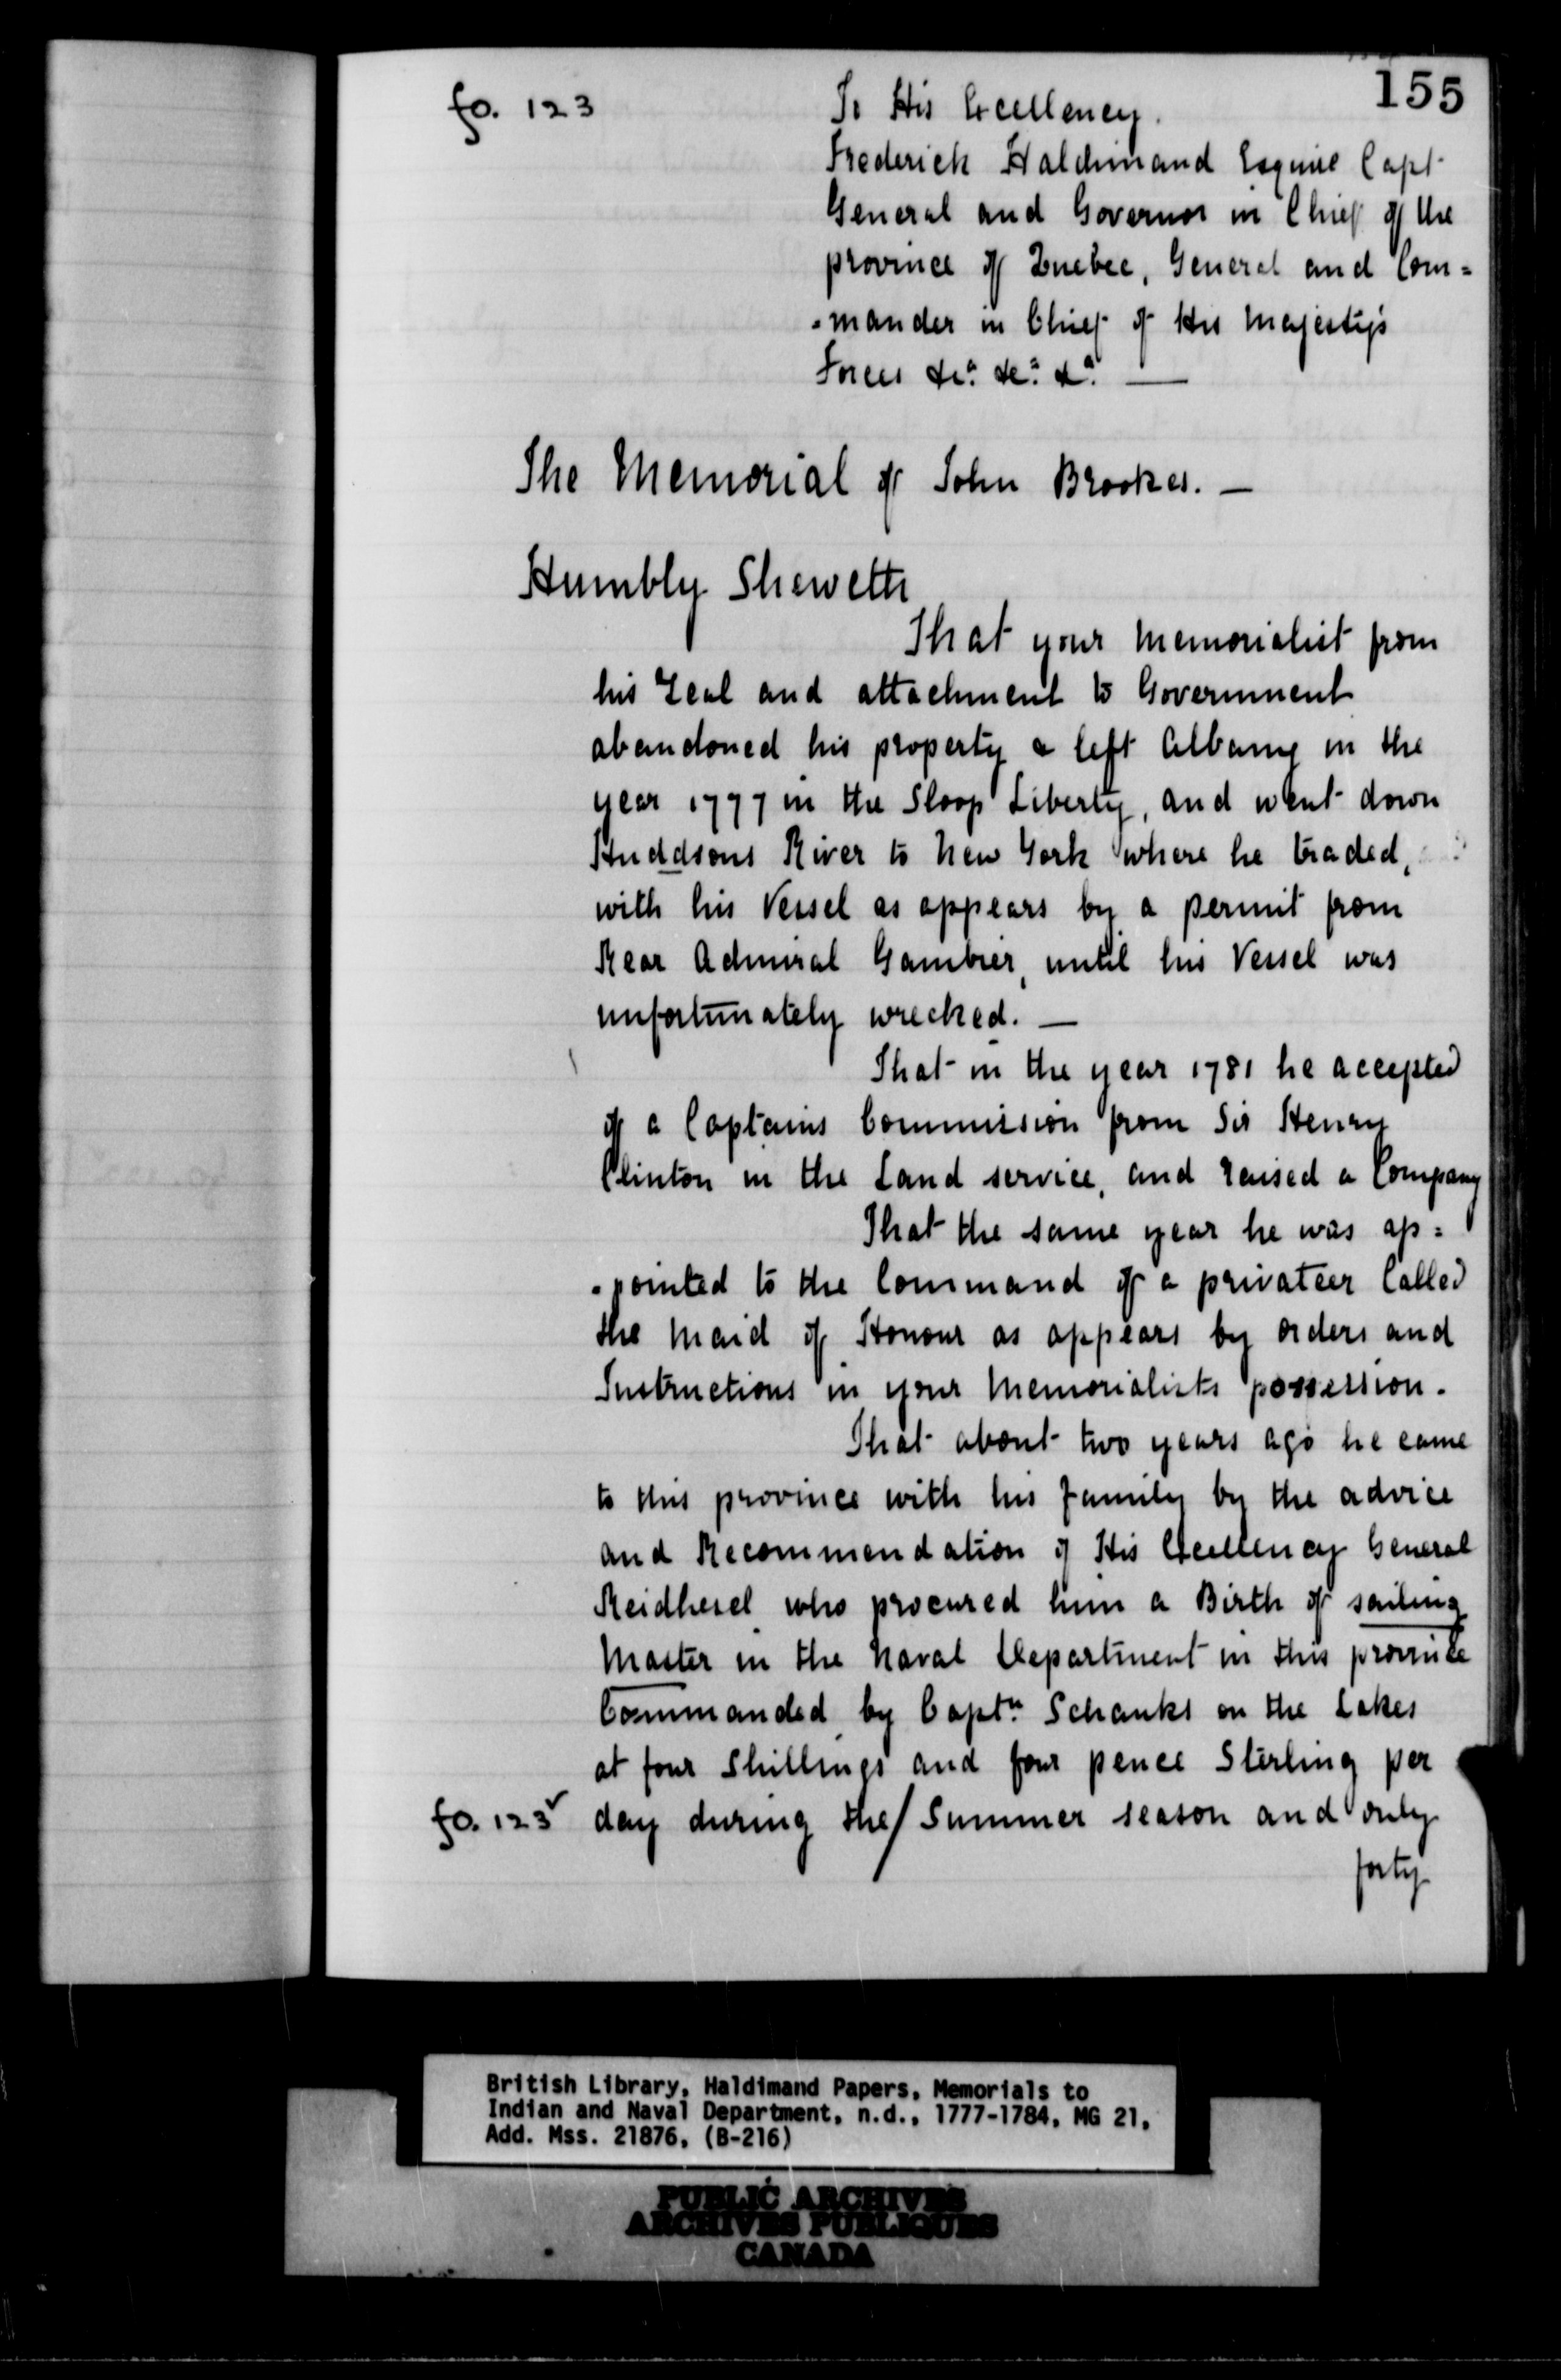 155
fo. 123
To His Excellency.
Frederick Haldimand Esquire Capt
General and Governor in Chief of the
province of Quebec, General and Com=
=mander in Chief of His Majesty's
Forces &c.a &c.a &a. —
The Memorial of John Brookes. —
Humbly Sheweth
That your Memorialist from
his Zeal and attachment to Government
abandoned his property & left Albany in the
year 1777 in the Sloop Liberty, and went down
Huddsons River to New York where he traded,
with his Vessel as appears by a permit from
Rear Admiral Gambier, until his Vessel was
unfortunately wrecked. —
That in the year 1781 he accepted
of a Captains Commission from Sir Henry
Clinton in the Land service, and raised a Company
That the same year he was ap=
=pointed to the Command of a privateer Called
the Maid of Honour as appears by orders and
Instructions in your Memorialists possession.
That about two years ago he came
to this province with his family by the advice
and Recommendation of His Excellency General
Reidhesel who procured him a Birth of sailing
Master in the Naval Department in this province
Commanded by Captn Schanks on the Lakes
at four Shillings and four pence Sterling per
fo. 123v day during the/ Summer season and only
forty
British Library, Haldimand Papers, Memorials to
Indian and Naval Department, n.d., 1777-1784, MG 21,
Add. Mss. 21876, (B-216)
PUBLIC ARCHIVES
ARCHIVES PUBLIQUES
CANADA